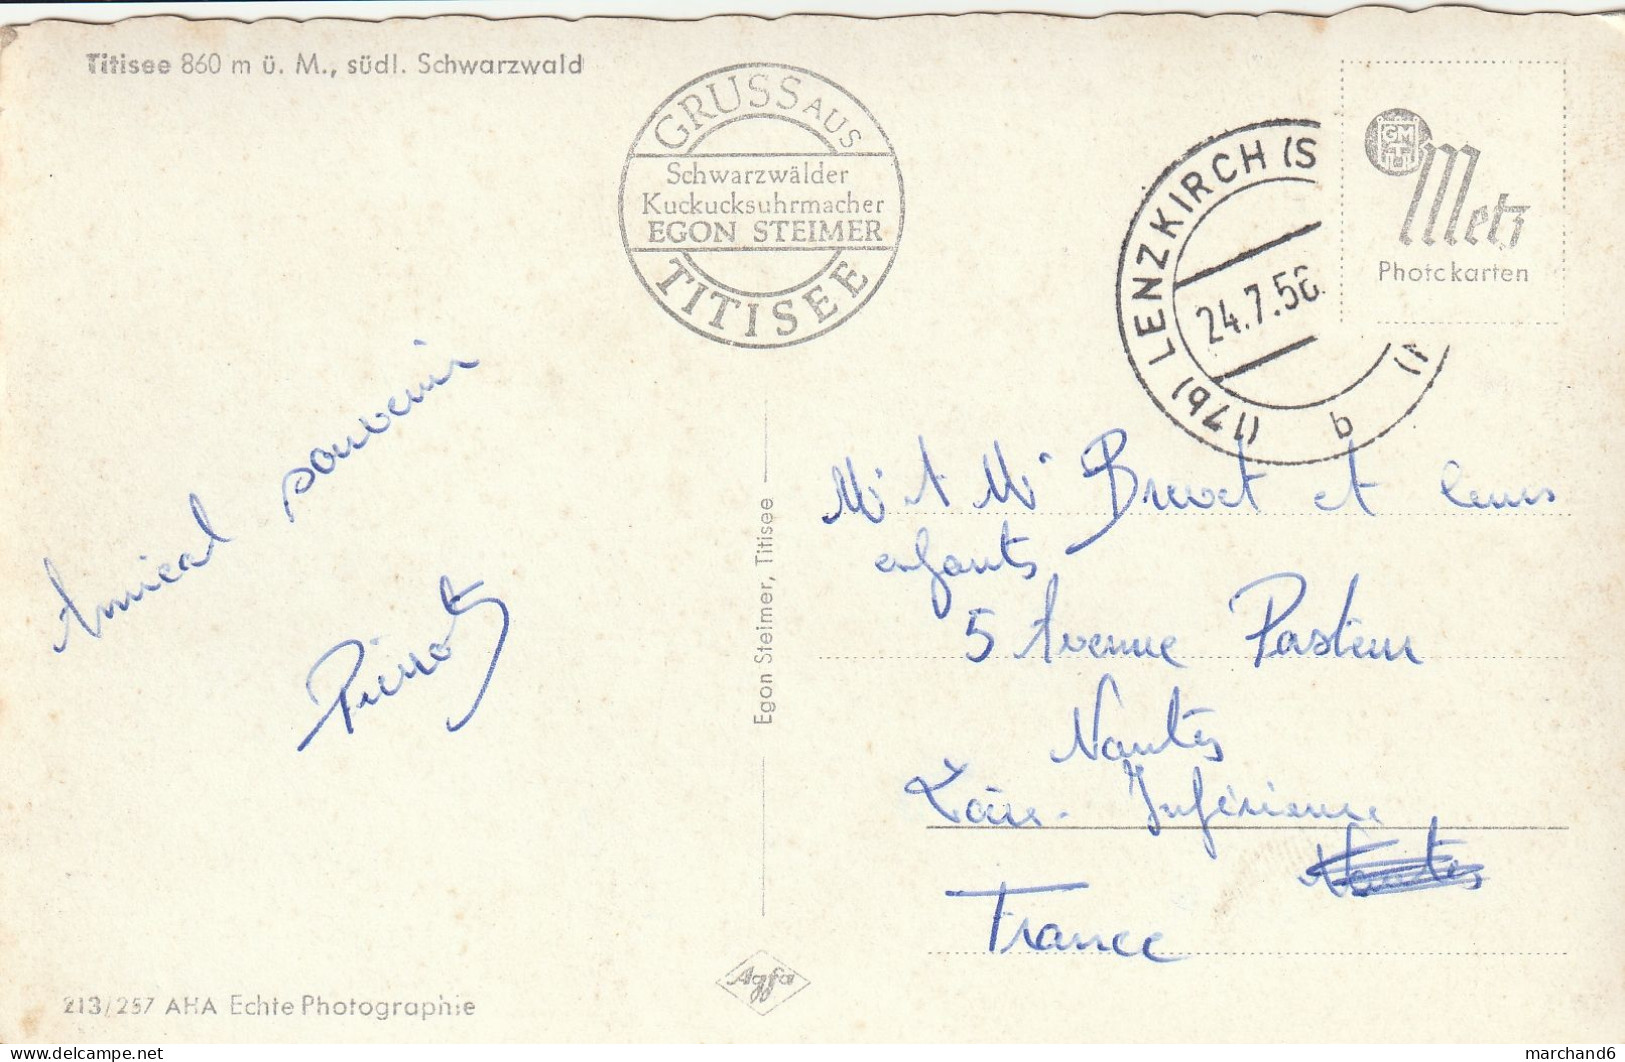 Titisee 860 m ü. M., südl. Schwarzwald
GRUSS AUS
Schwarzwälder
Kuckucksuhrmacher
EGON STEIMER
TITISEE
(17b) LENZKIRCH (S
24.7.56
b
GM
Metz
Photokarten
Amical souvenir
Pierrot
Egon Steimer, Titisee
Mr & Me Brevet et leurs
enfants
5 Avenue Pasteur
Nantes
Loire-Inférieure
Nantes
France
Agfa
213/257 AHA Echte Photographie
delcampe.net
marchand6